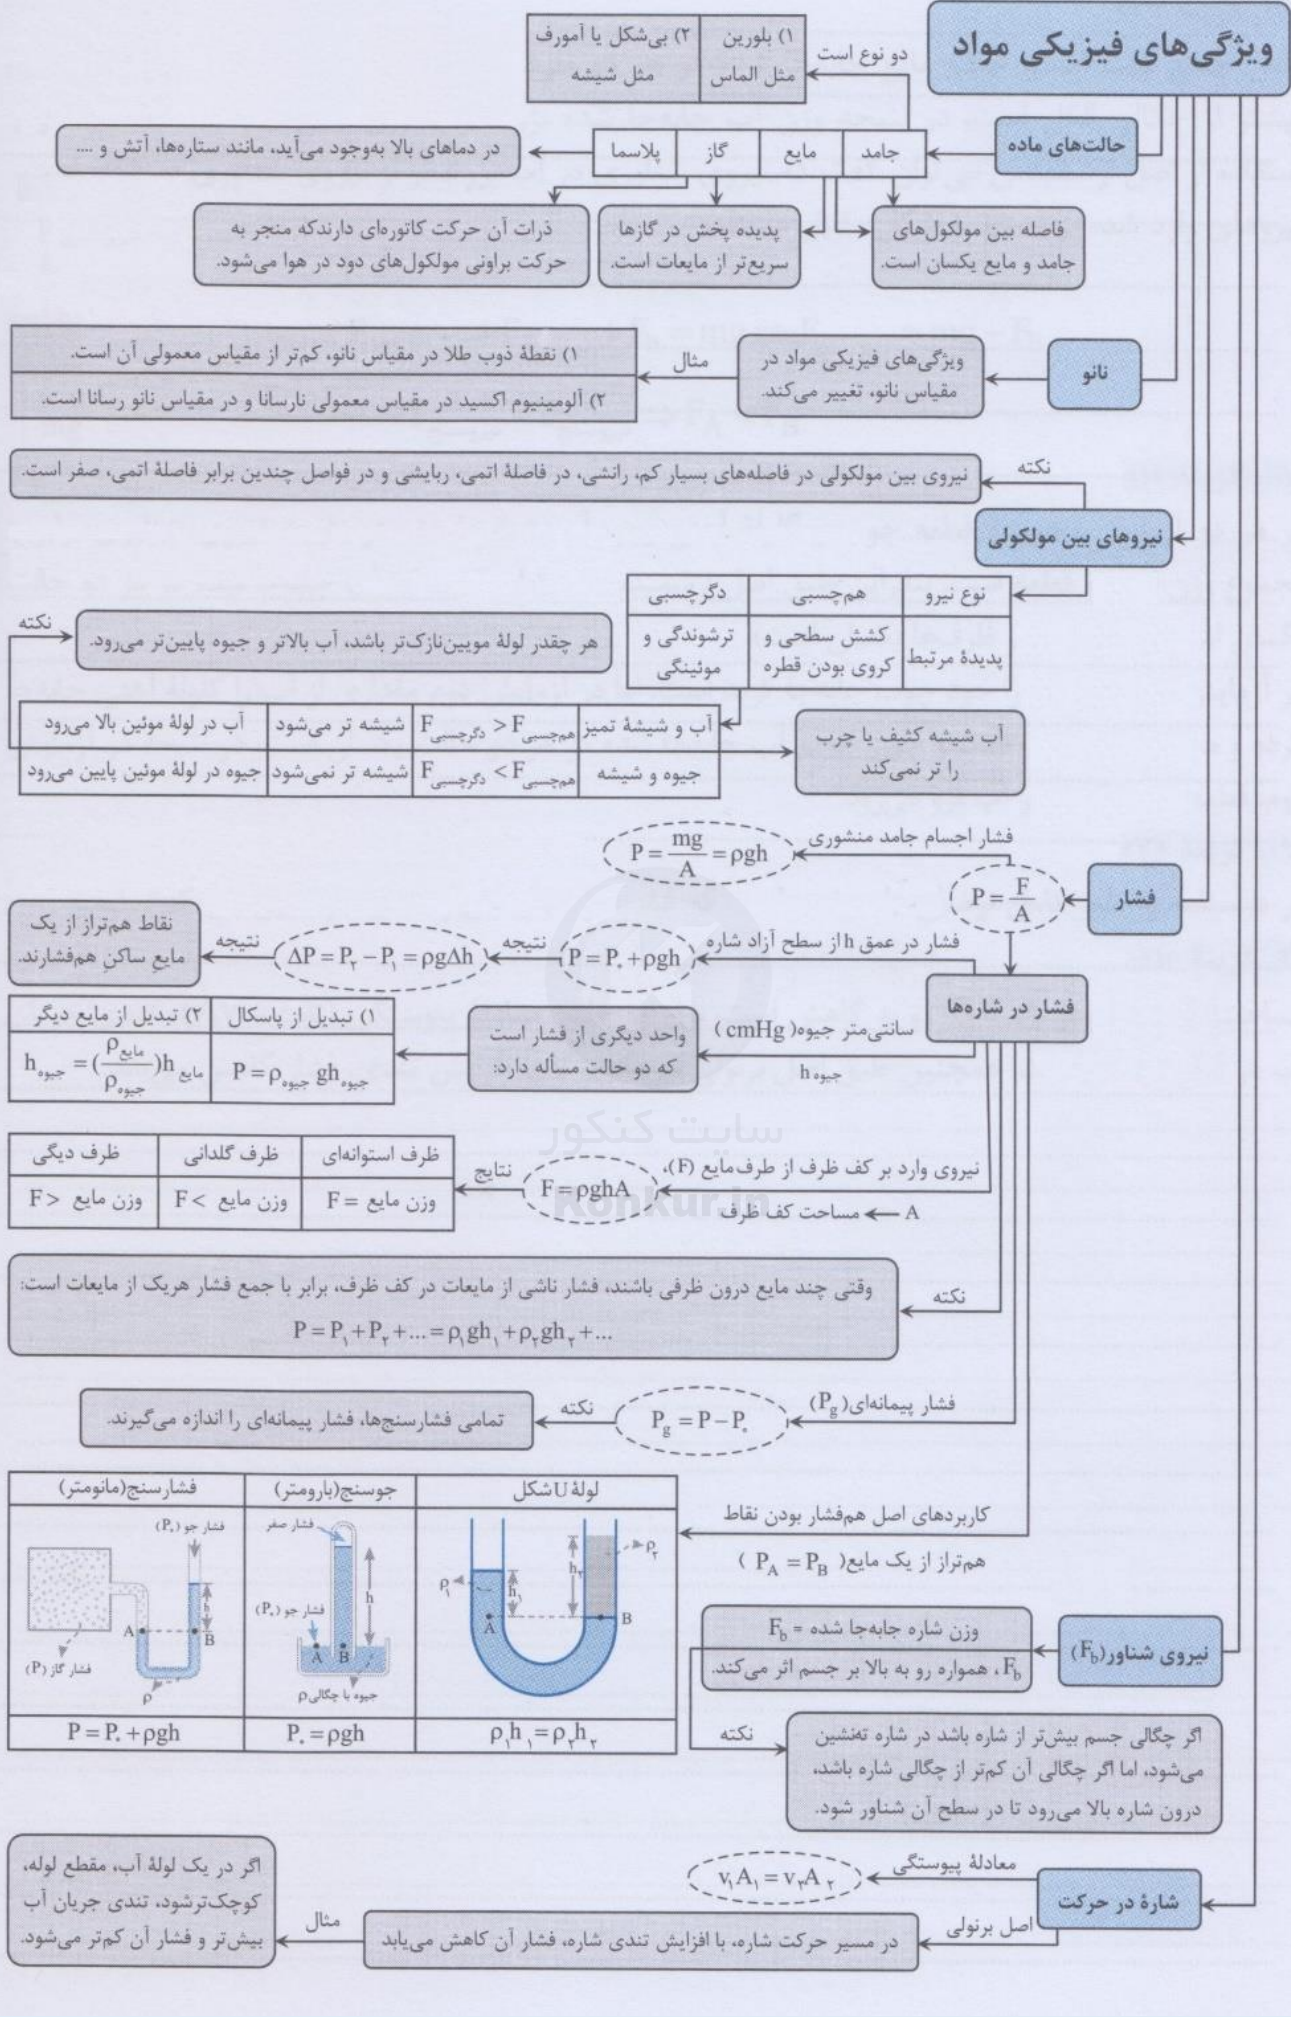 ویژگی‌های فیزیکی مواد
دو نوع است
۱) بلورین
مثل الماس
۲) بی‌شکل یا آمورف
مثل شیشه
حالت‌های ماده
جامد
مایع
گاز
پلاسما
در دماهای بالا به‌وجود می‌آید، مانند ستاره‌ها، آتش و ....
فاصله بین مولکول‌های
جامد و مایع یکسان است.
پدیده پخش در گازها
سریع‌تر از مایعات است.
ذرات آن حرکت کاتوره‌ای دارندکه منجر به
حرکت براونی مولکول‌های دود در هوا می‌شود.
نانو
ویژگی‌های فیزیکی مواد در
مقیاس نانو، تغییر می‌کند.
مثال
۱) نقطهٔ ذوب طلا در مقیاس نانو، کم‌تر از مقیاس معمولی آن است.
۲) آلومینیوم اکسید در مقیاس معمولی نارسانا و در مقیاس نانو رسانا است.
نکته
نیروی بین مولکولی در فاصله‌های بسیار کم، رانشی، در فاصلهٔ اتمی، ربایشی و در فواصل چندین برابر فاصلهٔ اتمی، صفر است.
نیروهای بین مولکولی
نوع نیرو
هم‌چسبی
دگرچسبی
پدیدهٔ مرتبط
کشش سطحی و
کروی بودن قطره
ترشوندگی و
موئینگی
نکته
هر چقدر لولهٔ مویین‌نازک‌تر باشد، آب بالاتر و جیوه پایین‌تر می‌رود.
آب و شیشهٔ تمیز
F دگرچسبی > F هم‌چسبی
شیشه تر می‌شود
آب در لولهٔ موئین بالا می‌رود
جیوه و شیشه
F دگرچسبی < F هم‌چسبی
شیشه تر نمی‌شود
جیوه در لولهٔ موئین پایین می‌رود
آب شیشه کثیف یا چرب
را تر نمی‌کند
فشار
P = F/A
فشار اجسام جامد منشوری
P = mg/A = ρgh
فشار در شاره‌ها
فشار در عمق h از سطح آزاد شاره
P = P۰ + ρgh
نتیجه
ΔP = P۲ − P۱ = ρgΔh
نتیجه
نقاط هم‌تراز از یک
مایع ساکن هم‌فشارند.
سانتی‌متر جیوه( cmHg )
h جیوه
واحد دیگری از فشار است
که دو حالت مسأله دارد:
۱) تبدیل از پاسکال
P = ρ جیوه gh جیوه
۲) تبدیل از مایع دیگر
h جیوه = (ρ مایع/ρ جیوه)h مایع
سایت کنکور
Konkur.in
نیروی وارد بر کف ظرف از طرف مایع (F)،
A ← مساحت کف ظرف
F = ρghA
نتایج
ظرف استوانه‌ای
ظرف گلدانی
ظرف دیگی
F = وزن مایع
F < وزن مایع
F > وزن مایع
نکته
وقتی چند مایع درون ظرفی باشند، فشار ناشی از مایعات در کف ظرف، برابر با جمع فشار هریک از مایعات است:
P = P۱ + P۲ + ... = ρ۱gh۱ + ρ۲gh۲ + ...
فشار پیمانه‌ای(Pg)
Pg = P − P۰
نکته
تمامی فشارسنج‌ها، فشار پیمانه‌ای را اندازه می‌گیرند.
کاربردهای اصل هم‌فشار بودن نقاط
هم‌تراز از یک مایع( PA = PB )
لولهٔ U شکل
جوسنج(بارومتر)
فشارسنج(مانومتر)
ρ۱
h۱
h۲
ρ۲
A
B
فشار صفر
h
فشار جو (P۰)
A
B
جیوه با چگالی ρ
فشار جو (P۰)
h
A
B
فشار گاز (P)
ρ
ρ۱h۱ = ρ۲h۲
P۰ = ρgh
P = P۰ + ρgh
نیروی شناور(Fb)
وزن شاره جابه‌جا شده = Fb
Fb، همواره رو به بالا بر جسم اثر می‌کند.
نکته
اگر چگالی جسم بیش‌تر از شاره باشد در شاره ته‌نشین
می‌شود، اما اگر چگالی آن کم‌تر از چگالی شاره باشد،
درون شاره بالا می‌رود تا در سطح آن شناور شود.
شارهٔ در حرکت
معادلهٔ پیوستگی
v۱A۱ = v۲A۲
اصل برنولی
در مسیر حرکت شاره، با افزایش تندی شاره، فشار آن کاهش می‌یابد
مثال
اگر در یک لولهٔ آب، مقطع لوله،
کوچک‌ترشود، تندی جریان آب
بیش‌تر و فشار آن کم‌تر می‌شود.